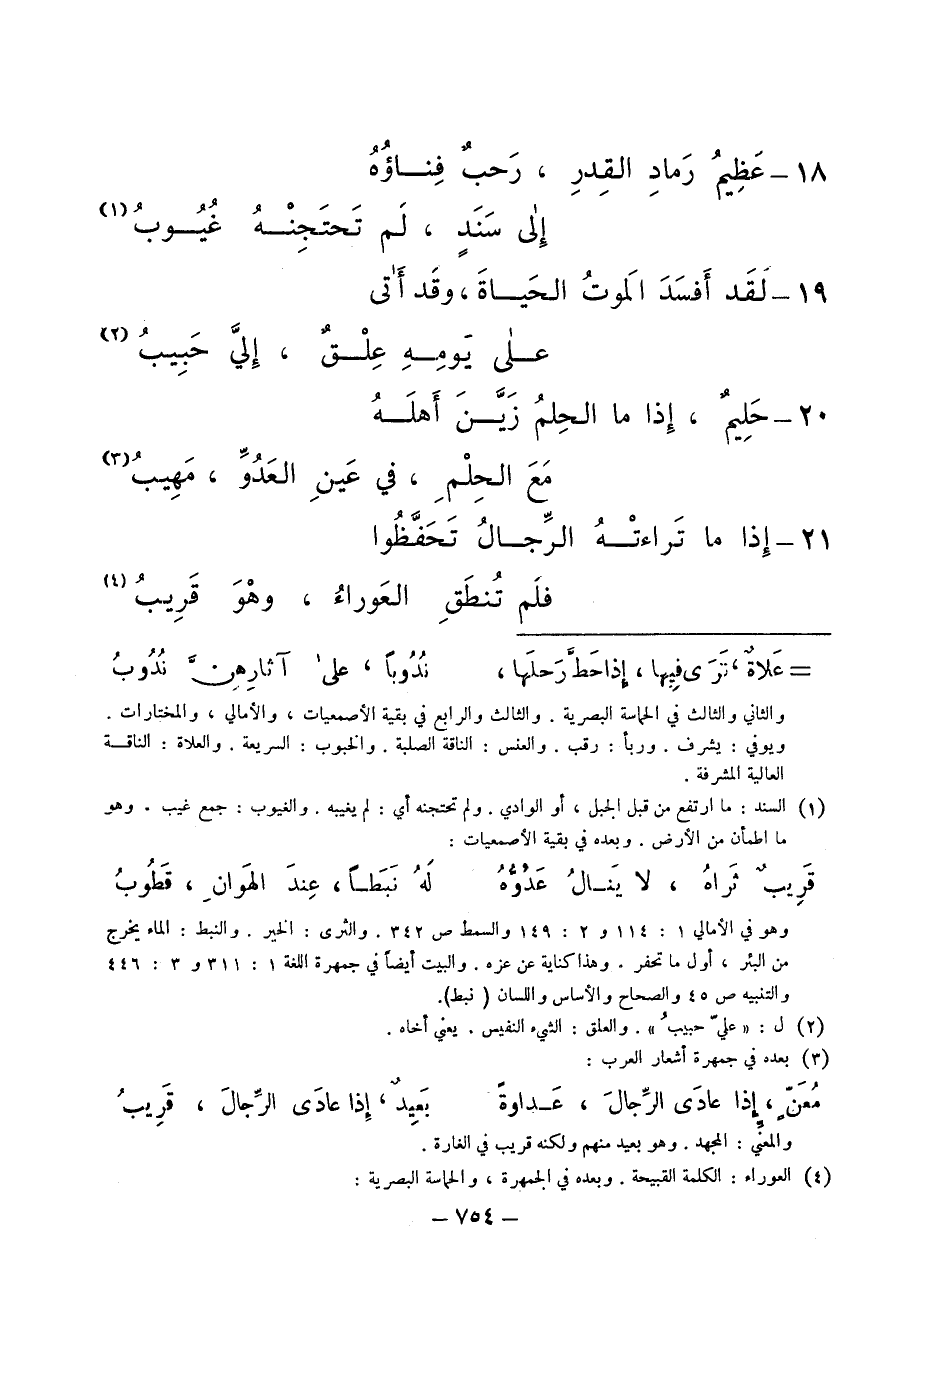 ١٨ - عَظِيمُ رَمادِ القِدرِ ، رَحبٌ فِناؤُهُ
إِلى سَنَدٍ ، لَم تَحتَجِنْهُ غُيُوبُ (١)
١٩ - لَقَد أَفسَدَ المَوتُ الحَياةَ ، وقَد أَتى
على يَومِهِ عِلْقٌ ، إِليَّ حَبِيبُ (٢)
٢٠ - حَلِيمٌ ، إِذا ما الحِلمُ زَيَّنَ أَهلَهُ
مَعَ الحِلْمِ ، في عَينِ العَدُوِّ ، مَهِيبُ (٣)
٢١ - إِذا ما تَراءتْهُ الرِّجالُ تَحَفَّظُوا
فلَم تُنطَقِ العَوراءُ ، وهْوَ قَرِيبُ (٤)
= عَلاةٌ ، تَرَى فِيها ، إِذا حَطَّ رَحلَها ، نُدُوباً ، على آثارِهِنَّ نُدُوبُ
والثاني والثالث في الحماسة البصرية . والثالث والرابع في بقية الأصمعيات ، والأمالي ، والمختارات .
ويوفي : يشرف . وربأ : رقب . والعنس : الناقة الصلبة . والخبوب : السريعة . والعلاة : الناقة
العالية المشرفة .
(١) السند : ما ارتفع من قبل الجبل ، أو الوادي . ولم تحتجنه أي : لم يغيبه . والغيوب : جمع غيب . وهو
ما اطمأن من الأرض . وبعده في بقية الأصمعيات :
قَرِيبٌ ثَراهُ ، لا يَنالُ عَدُوُّهُ لَهُ نَبَطاً ، عِندَ الهَوانِ ، قَطُوبُ
وهو في الأمالي ١ : ١١٤ و ٢ : ١٤٩ والسمط ص ٣٤٢ . والثرى : الخير . والنبط : الماء يخرج
من البئر ، أول ما تحفر . وهذا كناية عن عزه . والبيت أيضاً في جمهرة اللغة ١ : ٣١١ و ٣ : ٤٤٦
والتنبيه ص ٤٥ والصحاح والأساس واللسان ( نبط ).
(٢) ل : « عليّ حبيبُ » . والعلق : الشيء النفيس . يعني أخاه .
(٣) بعده في جمهرة أشعار العرب :
مُعَنٍّ ، إِذا عادَى الرِّجالَ ، عَداوةً بَعِيدٌ ، إِذا عادَى الرِّجالَ ، قَرِيبُ
والمعنّي : المجهد . وهو بعيد منهم ولكنه قريب في الغارة .
(٤) العوراء : الكلمة القبيحة . وبعده في الجمهرة ، والحماسة البصرية :
– ٧٥٤ –